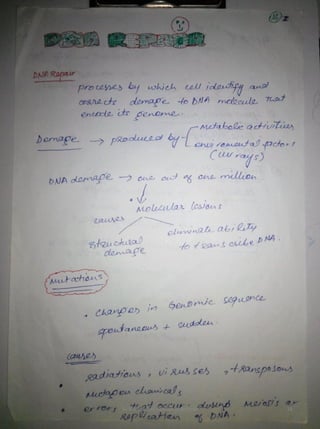 DNA REPAIR
DNA Repair
processes by which cell identify and
corrects damage to DNA molecule that
encode its genome.
Damage → produced by - Metabolic activities
environmental factors
(UV rays)
DNA damage → one out of one million
Molecular lesions
causes
structural
damage
eliminate ability
to transcribe DNA.
Mutations
• Changes in Genomic sequence
spontaneous + sudden.
causes
radiations, virusses, transposons
Mutagen chemicals,
• errors that occur during meiosis or
Replication of DNA.